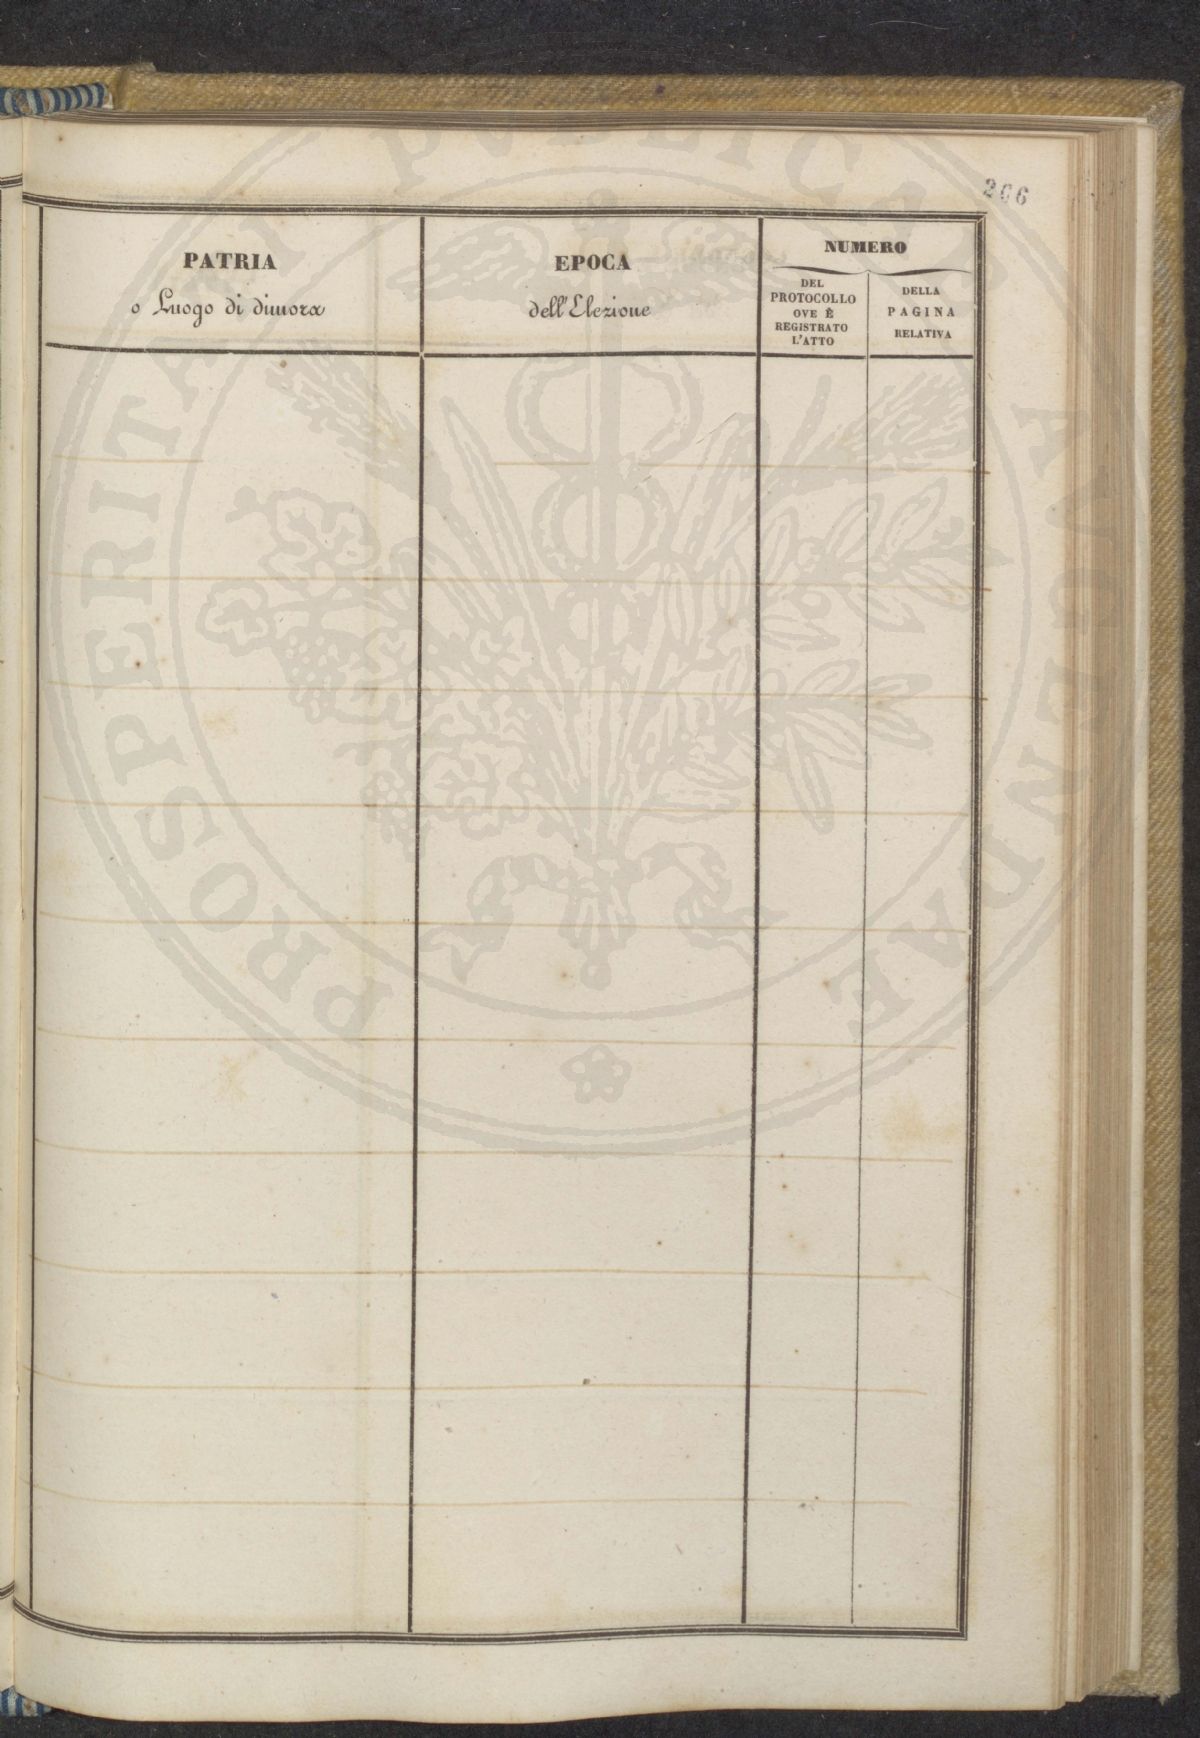 266
PATRIA
o Luogo di dimora
EPOCA
dell'Elezione
NUMERO
DEL
PROTOCOLLO
OVE È
REGISTRATO
L'ATTO
DELLA
PAGINA
RELATIVA
PROSPERITATI PUBLICAE AVGENDAE